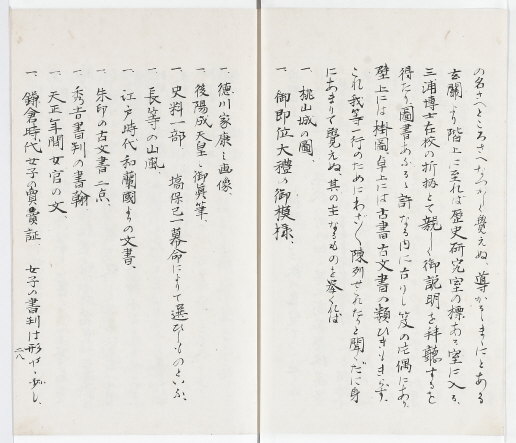 の名さへところさへなつかしく覺えぬ、導かるゝまにまにとある
玄關より階上に至れば歴史研究室の標ある室に入る、
三浦博士在校の折柄とて親しく御説明を拜聽するを
得たり、圖書あふるゝ許なる内に古りし笈の片偶にあり
壁上には掛圖卓上には古書古文書の類ひまもあらず、
これ我等一行のためにわざわざ陳列せられたりと聞くだに身
にあまりて覺えぬ、其の主なるものを擧ぐれば
一、桃山城の圖、
一、御即位大禮の御模樣、
一、德川家康の畫像、
一、後陽成天皇の御宸筆、
一、史料一部 塙保己一幕命によりて選びしものといふ、
一、長等の山風、
一、江戸時代和蘭國よりの文書、
一、朱印の古文書二点、
一、秀吉書判の書翰
一、天正年間女官の文、
一、鎌倉時代女子の賣買証、 女子の書判は形やゝ少し、
二八